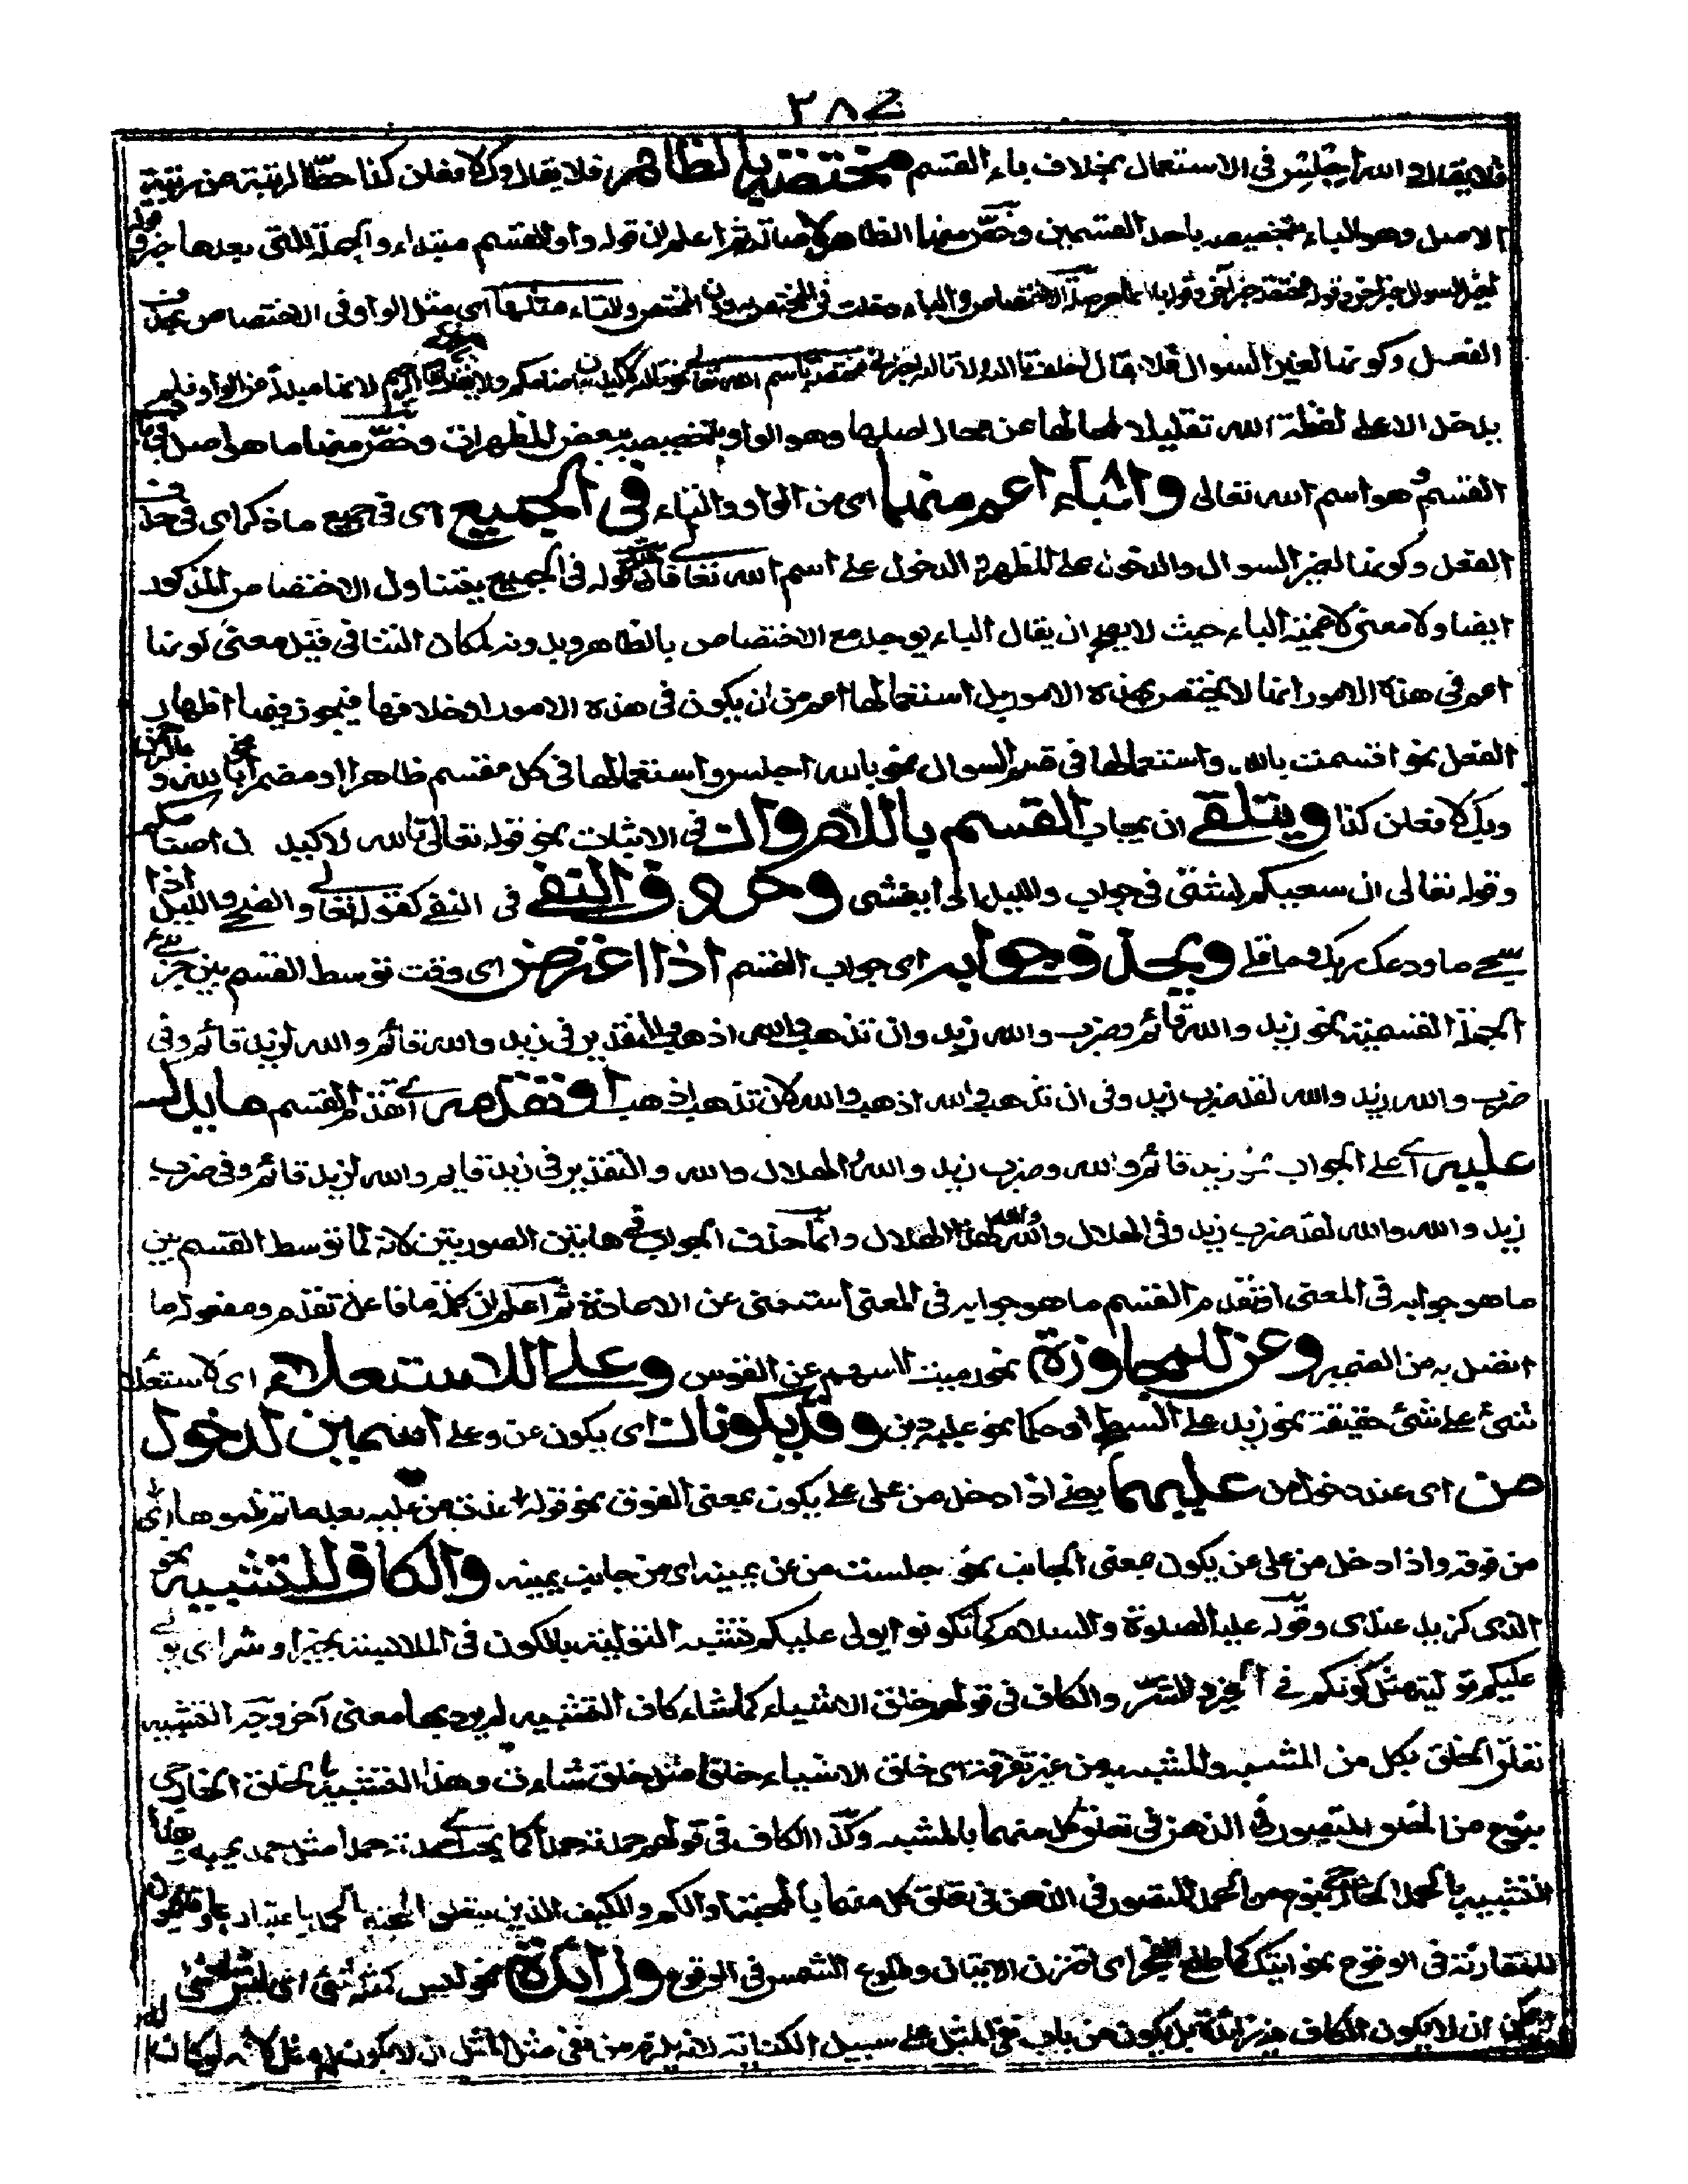 ٣٨٤
فلا يقال والله اجلس فى الاستعمال بخلاف باء القسم مختصة بالظاهر فلا يقال وك لافعلن كذا حطّا لرتبة عن رتبة
الاصل وهو الباء بتخصيصه باحد القسمين وخصّ منهما الظاهر لاصالته ثم اعلم ان قوله واو القسم مبتداء والجملة التى بعدها خبره
لغير السوال خبر آخر وقوله مختصة خبر آخر وقوله بالظاهر صلة الاختصاص والتاء مثلها اى مثل الواو فى الاختصاص بحذف
الفعل وكونها لغير السوال فلا يقال باسم الله تعالى لاكيدن اصنامكم لانها مبدلة من الواو فلم
يدخل الا على لفظة الله تقليلا لمحالها عن محال اصلها وهو الواو بتخصيصه ببعض المظهرات وخصّ منها ما هو اصل فى باب
القسم وهو اسم الله تعالى والباء اعم منهما اى من الواو والتاء فى الجميع اى فى جميع ما ذكر اى فى حذف
الفعل وكونها لغير السوال والدخول على المظهر و الدخول على اسم الله تعالى فان قوله فى الجميع يتناول الاختصاص المذكور
ايضا ولا معنى لاعمية الباء حيث لا يصح ان يقال الباء يوجد مع الاختصاص بالظاهر وبدونه لمكان التنافى قيل معنى كونها
اعم فى هذه الامور انها لا يختص بهذه الامور بل استعمالها اعم من ان يكون فى هذه الامور او خلافها فيجوز فيها اظهار
الفعل نحو اقسمت بالله واستعمالها فى قسم السوال نحو بالله اجلس واستعمالها فى كل مقسم ظاهرا او مضمرا نحو بالله و
وبك لافعلن كذا ويتلقى ان يجاب القسم باللام وان فى الاثبات نحو قوله تعالى تالله لاكيدن اصنامكم
وقوله تعالى ان سعيكم لشتى فى جواب والليل اذا يغشى وحروف النفى فى النفى كقوله تعالى والضحى والليل اذا
سجى ما ودعك ربك وما قلى ويحذف جوابه اى جواب القسم اذا اعترض اى وقت توسط القسم بين جزئى
الجملة القسمية نحو زيد والله قائم وضرب والله زيد وان تذهب والله اذهب والتقدير فى زيد والله قائم والله لزيد قائم وفى
ضرب والله زيد والله لقد ضرب زيد وفى ان تذهب والله اذهب والله لان تذهب اذهب او تقدمه اى القسم ما يدل
عليه اى على الجواب نحو زيد قائم والله وضرب زيد والله والهلال والله والتقدير فى زيد قايم والله لزيد قائم وفى ضرب
زيد والله والله لقد ضرب زيد وفى الهلال والله والله لهذا الهلال وانما حذف الجواب فى هاتين الصورتين لانه لما توسط القسم بين
ما هو جوابه فى المعنى او تقدم القسم ما هو جوابه فى المعنى استغنى عن الاعادة ثم اعلم ان كلمة ما فاعل تقدم ومفعوله ما
اتصل به من الضمير وعن للمجاوزة نحو رميت السهم عن القوس وعلى للاستعلاء اى لاستعلاء
شئ على شئ حقيقة نحو زيد على السطح او حكما نحو عليه دين وقد يكونان اى يكون عن وعلى اسمين لدخول
من اى عند دخول من عليهما يعنى اذا دخل من على على يكون بمعنى الفوق نحو قوله غدت من عليه بعد ما تم ظموها اى
من فوقه واذا دخل من على عن يكون بمعنى الجانب نحو جلست من عن يمينه اى من جانب يمينه والكاف للتشبيه نحو
الذى كزيد عندى وقوله عليه الصلوة والسلام كما تكونوا يولى عليكم تشبيه التولية بالكون فى الملابسة بخير او شر اى يولى
عليكم تولية مثل كونكم فى الخير والشر والكاف فى قولهم خلق الاشياء كما شاء كاف التشبيه لم يرد بها معنى آخر وجه التشبيه
تعلق الخلق بكل من المشبه والمشبه به من غير تفرقة اى خلق الاشياء خلقا مثل خلق شاءه وهذا التشبيه الخلق الخارجى
بنوع من الخلق المتصور فى الذهن فى تعلق كل منهما بالمشبه وكذا الكاف فى قولهم حمدته حمدا كما يحب اى حمدته حمدا مثل حمد يحبه وهذا
التشبيه الحمد الخارجى بنوع من الحمد المتصور فى الذهن فى تعلق كل منهما بالمحبة والكم والكيف الذين يتعلق المحبة بالحمد باعتبارهما وقد يكون
للمقارنة فى الوقوع نحو اتيتك كما طلع الفجر اى اقترن الاتيان وطلوع الشمس فى الوقوع وزائدة نحو ليس كمثله شئ اى ليس مثله شئ
ويمكن ان لا يكون الكاف هنا زائدة بل يكون من باب نفى المثل على سبيل الكناية لانه يلزم من نفى مثل المثل ان لا يكون له مثل لانه لو كان له